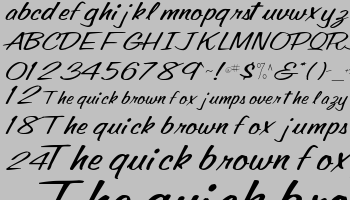 abcdefghijkl mnopqrst uvwxyz
ABCDEFGHIJKLMNOPQRS
0123456789~!@#$%^&*()-
12 The quick brown fox jumps over the lazy
18 The quick brown fox jumps
24 The quick brown fox
The quick bro